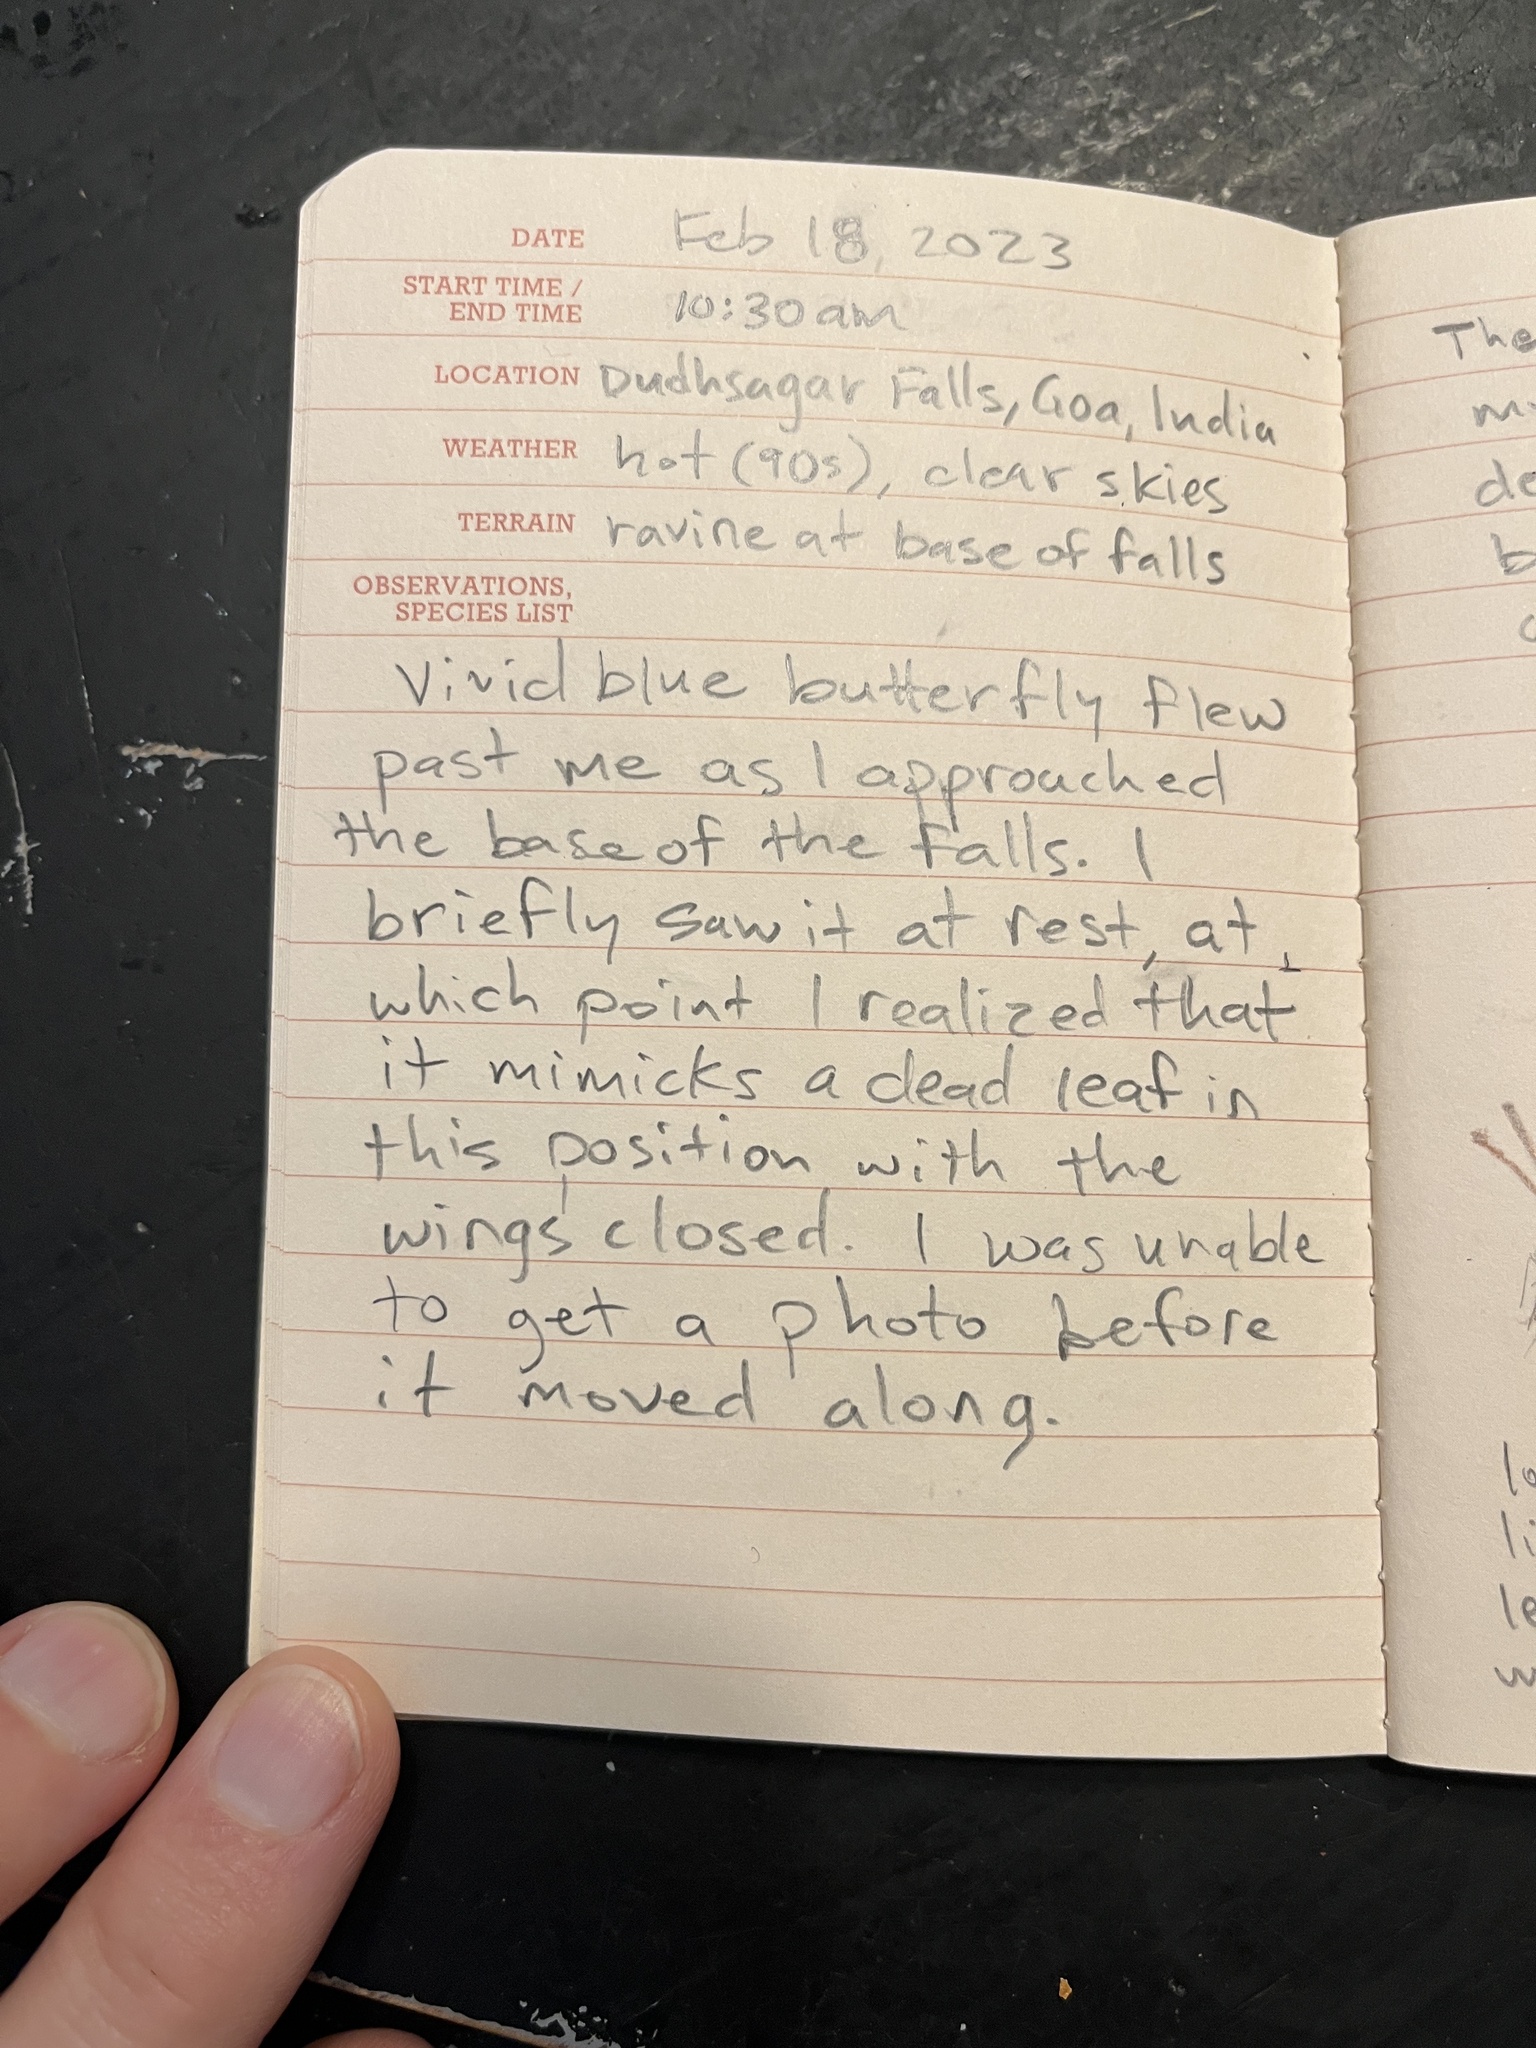 DATE Feb 18, 2023
START TIME /
END TIME 10:30am
LOCATION Dudhsagar Falls, Goa, India
WEATHER hot (90s), clear skies
TERRAIN ravine at base of falls
OBSERVATIONS,
SPECIES LIST
Vivid blue butterfly flew
past me as I approached
the base of the falls. I
briefly saw it at rest, at
which point I realized that
it mimicks a dead leaf in
this position with the
wings closed. I was unable
to get a photo before
it moved along.
The